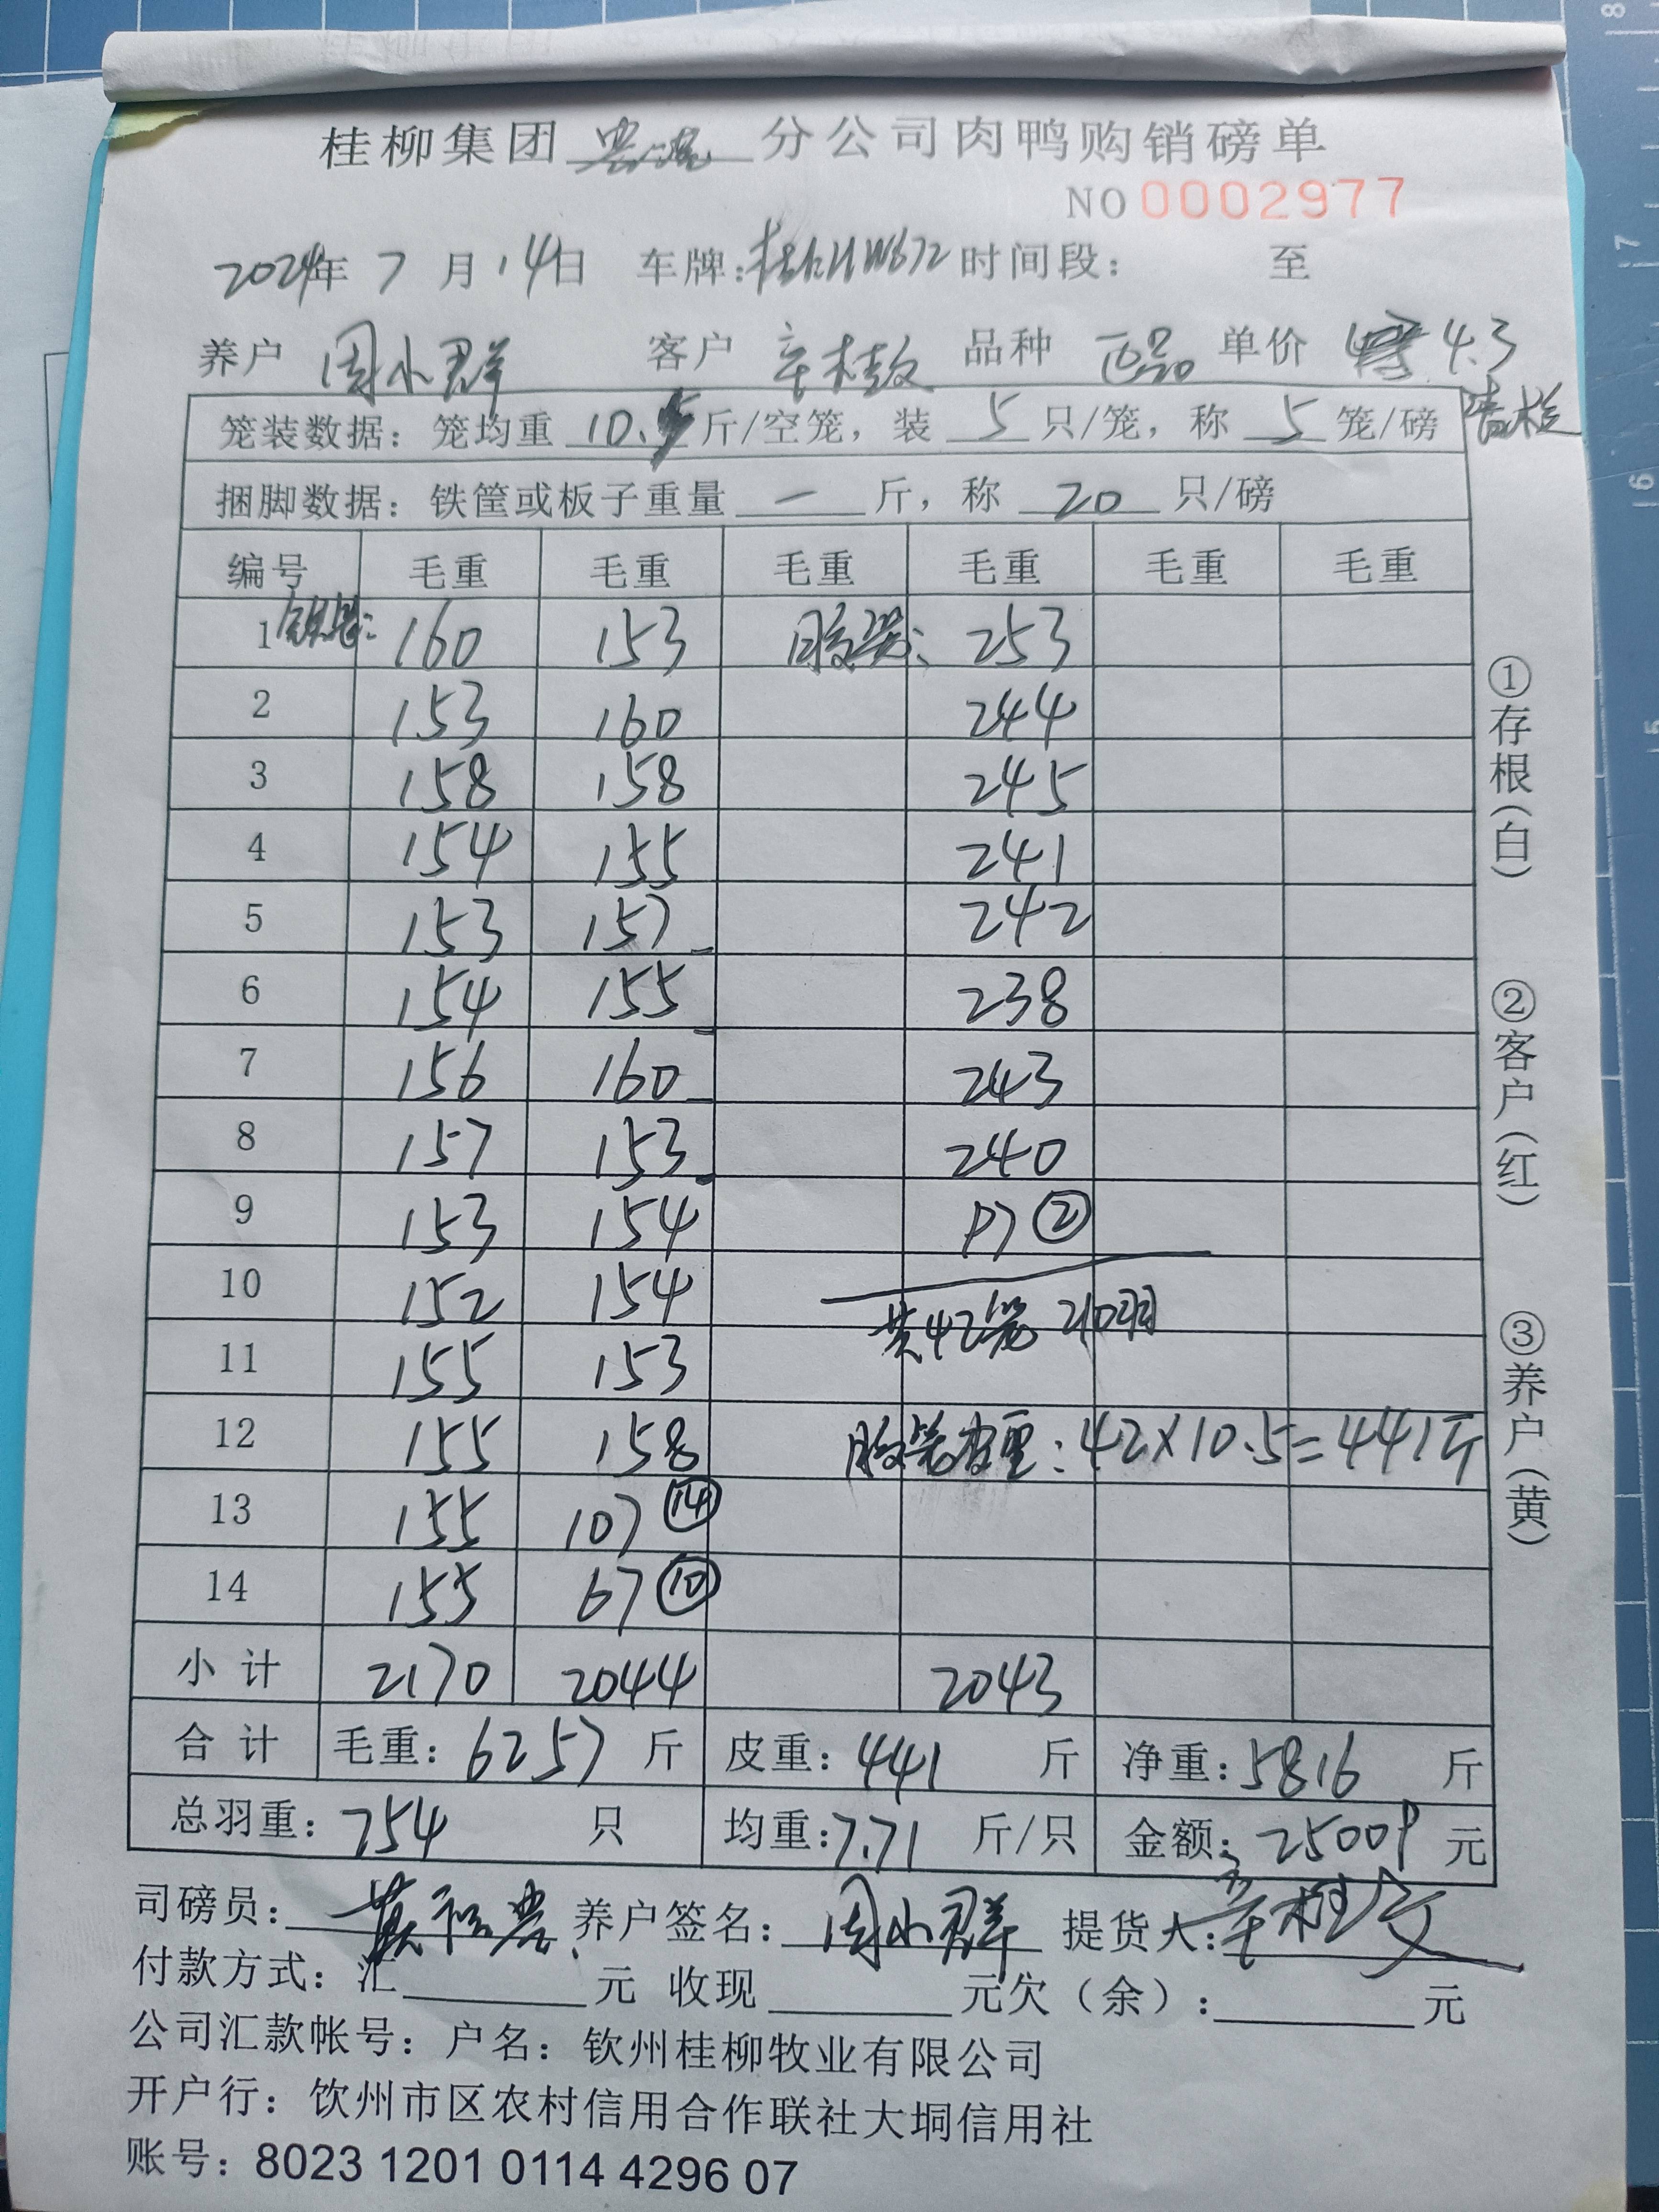 桂柳集团 分公司肉鸭购销磅单
NO 0002977
2024年 7 月 14日 车牌: 时间段： 至
养户 周小群 客户 辛桂文 品种 正品 单价 4.3
笼装数据：笼均重 10.5 斤/空笼，装 5 只/笼，称 5 笼/磅
捆脚数据：铁筐或板子重量 一 斤，称 20 只/磅
编号 毛重 毛重 毛重 毛重 毛重 毛重
1 160 153 胶笼: 253
2 153 160 244
3 158 158 245
4 154 155 241
5 153 157 242
6 154 155 238
7 156 160 243
8 157 153 240
9 153 154 97 ②
10 152 154
共42笼 210羽
11 155 153
12 155 158 胶笼皮重: 42×10.5=441斤
13 155 107 ⑭
14 155 67 ⑩
小计 2170 2044 2043
合计 毛重: 6257 斤 皮重: 441 斤 净重: 5816 斤
总羽重: 754 只 均重: 7.71 斤/只 金额: 25009 元
司磅员: 养户签名: 周小群 提货人: 辛桂文
付款方式: 汇 元 收现 元欠（余）: 元
公司汇款帐号: 户名: 钦州桂柳牧业有限公司
开户行: 钦州市区农村信用合作联社大垌信用社
账号: 8023 1201 0114 4296 07
①存根(白)
②客户(红)
③养户(黄)